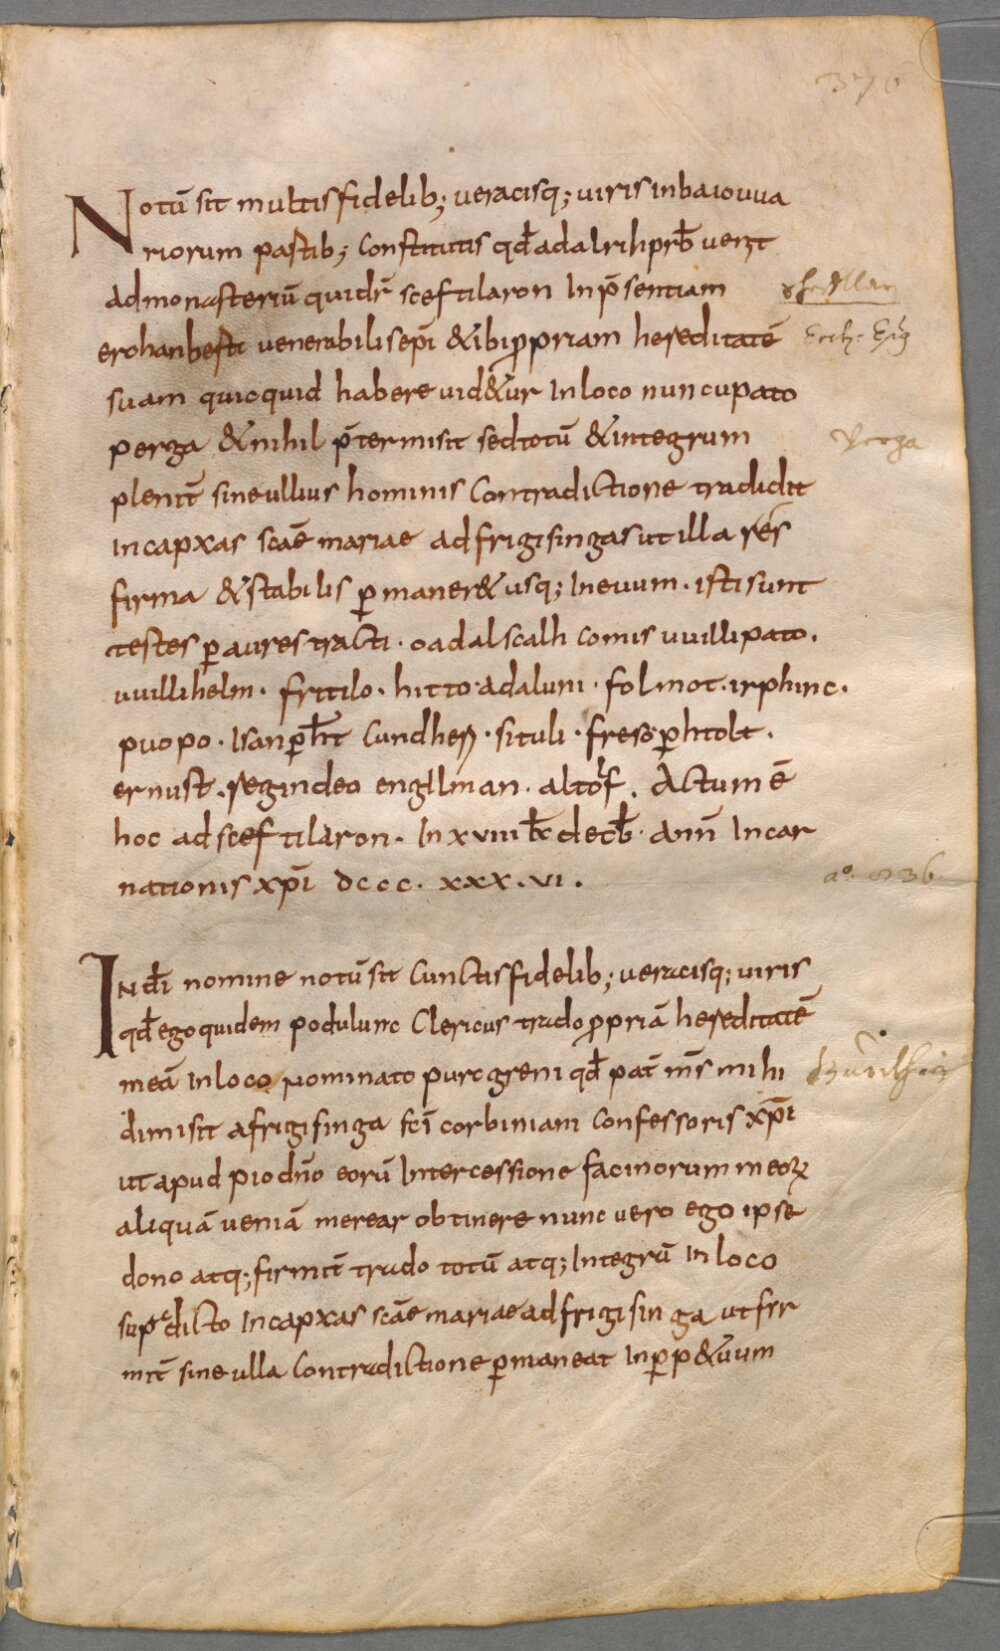 376
Notū sit multis fidelib; veracisq; viris in baiouua
riorum partib; Constitutis qđ adalrih prb̄ venit
ad monasteriū quidr̄ sceftilaron In p̄sentiam
erchanberti venerabilis ep̄i & ibi ꝓpriam hereditatē
suam quicquid habere uid&ur In loco nuncupato
perga & nihil p̄termisit sed totū & integrum
plenit̄ sine ullius hominis Contradictione tradidit
in capxas scāe mariae ad frigisingas ut illa res
firma & stabilis ꝑmaner& usq; In evum · isti sunt
testes ꝑ aures tracti · oadalscalh comis uuillipato ·
uuillihelm · fritilo · hitto · adaluni · folmot · irphinc ·
puopo · Isanꝑht Cundheri · situli · freso · ꝑhtolt ·
ernust · regindeo engilman · altolf · Actum ē
hoc ad sceftilaron · In xviii kƚ decb̄ · ann̄ Incar
nationis xp̄i dccc · xxx · vi ·
Perga
aº. 836
In dī nomine notū sit Cunctis fidelib; veracisq; viris
qđ ego quidem podulunc Clericus trado ꝓpriā hereditatē
meā In loco Nominato purcgreni qđ pat̄ m̄s mihi
dimisit a frigisinga sc̄i corbiniani Confessoris xp̄i
ut apud pio dn̄o eorū Intercessione facinorum meoꝝ
aliquā veniā merear obtinere nunc vero ego ipse
dono atq; firmit̄ trado totū atq; Integrū In loco
supdicto In capxas scāe mariae ad frigisinga ut fir
mit̄ sine ulla Contradictione ꝑmaneat In ꝑp&uum